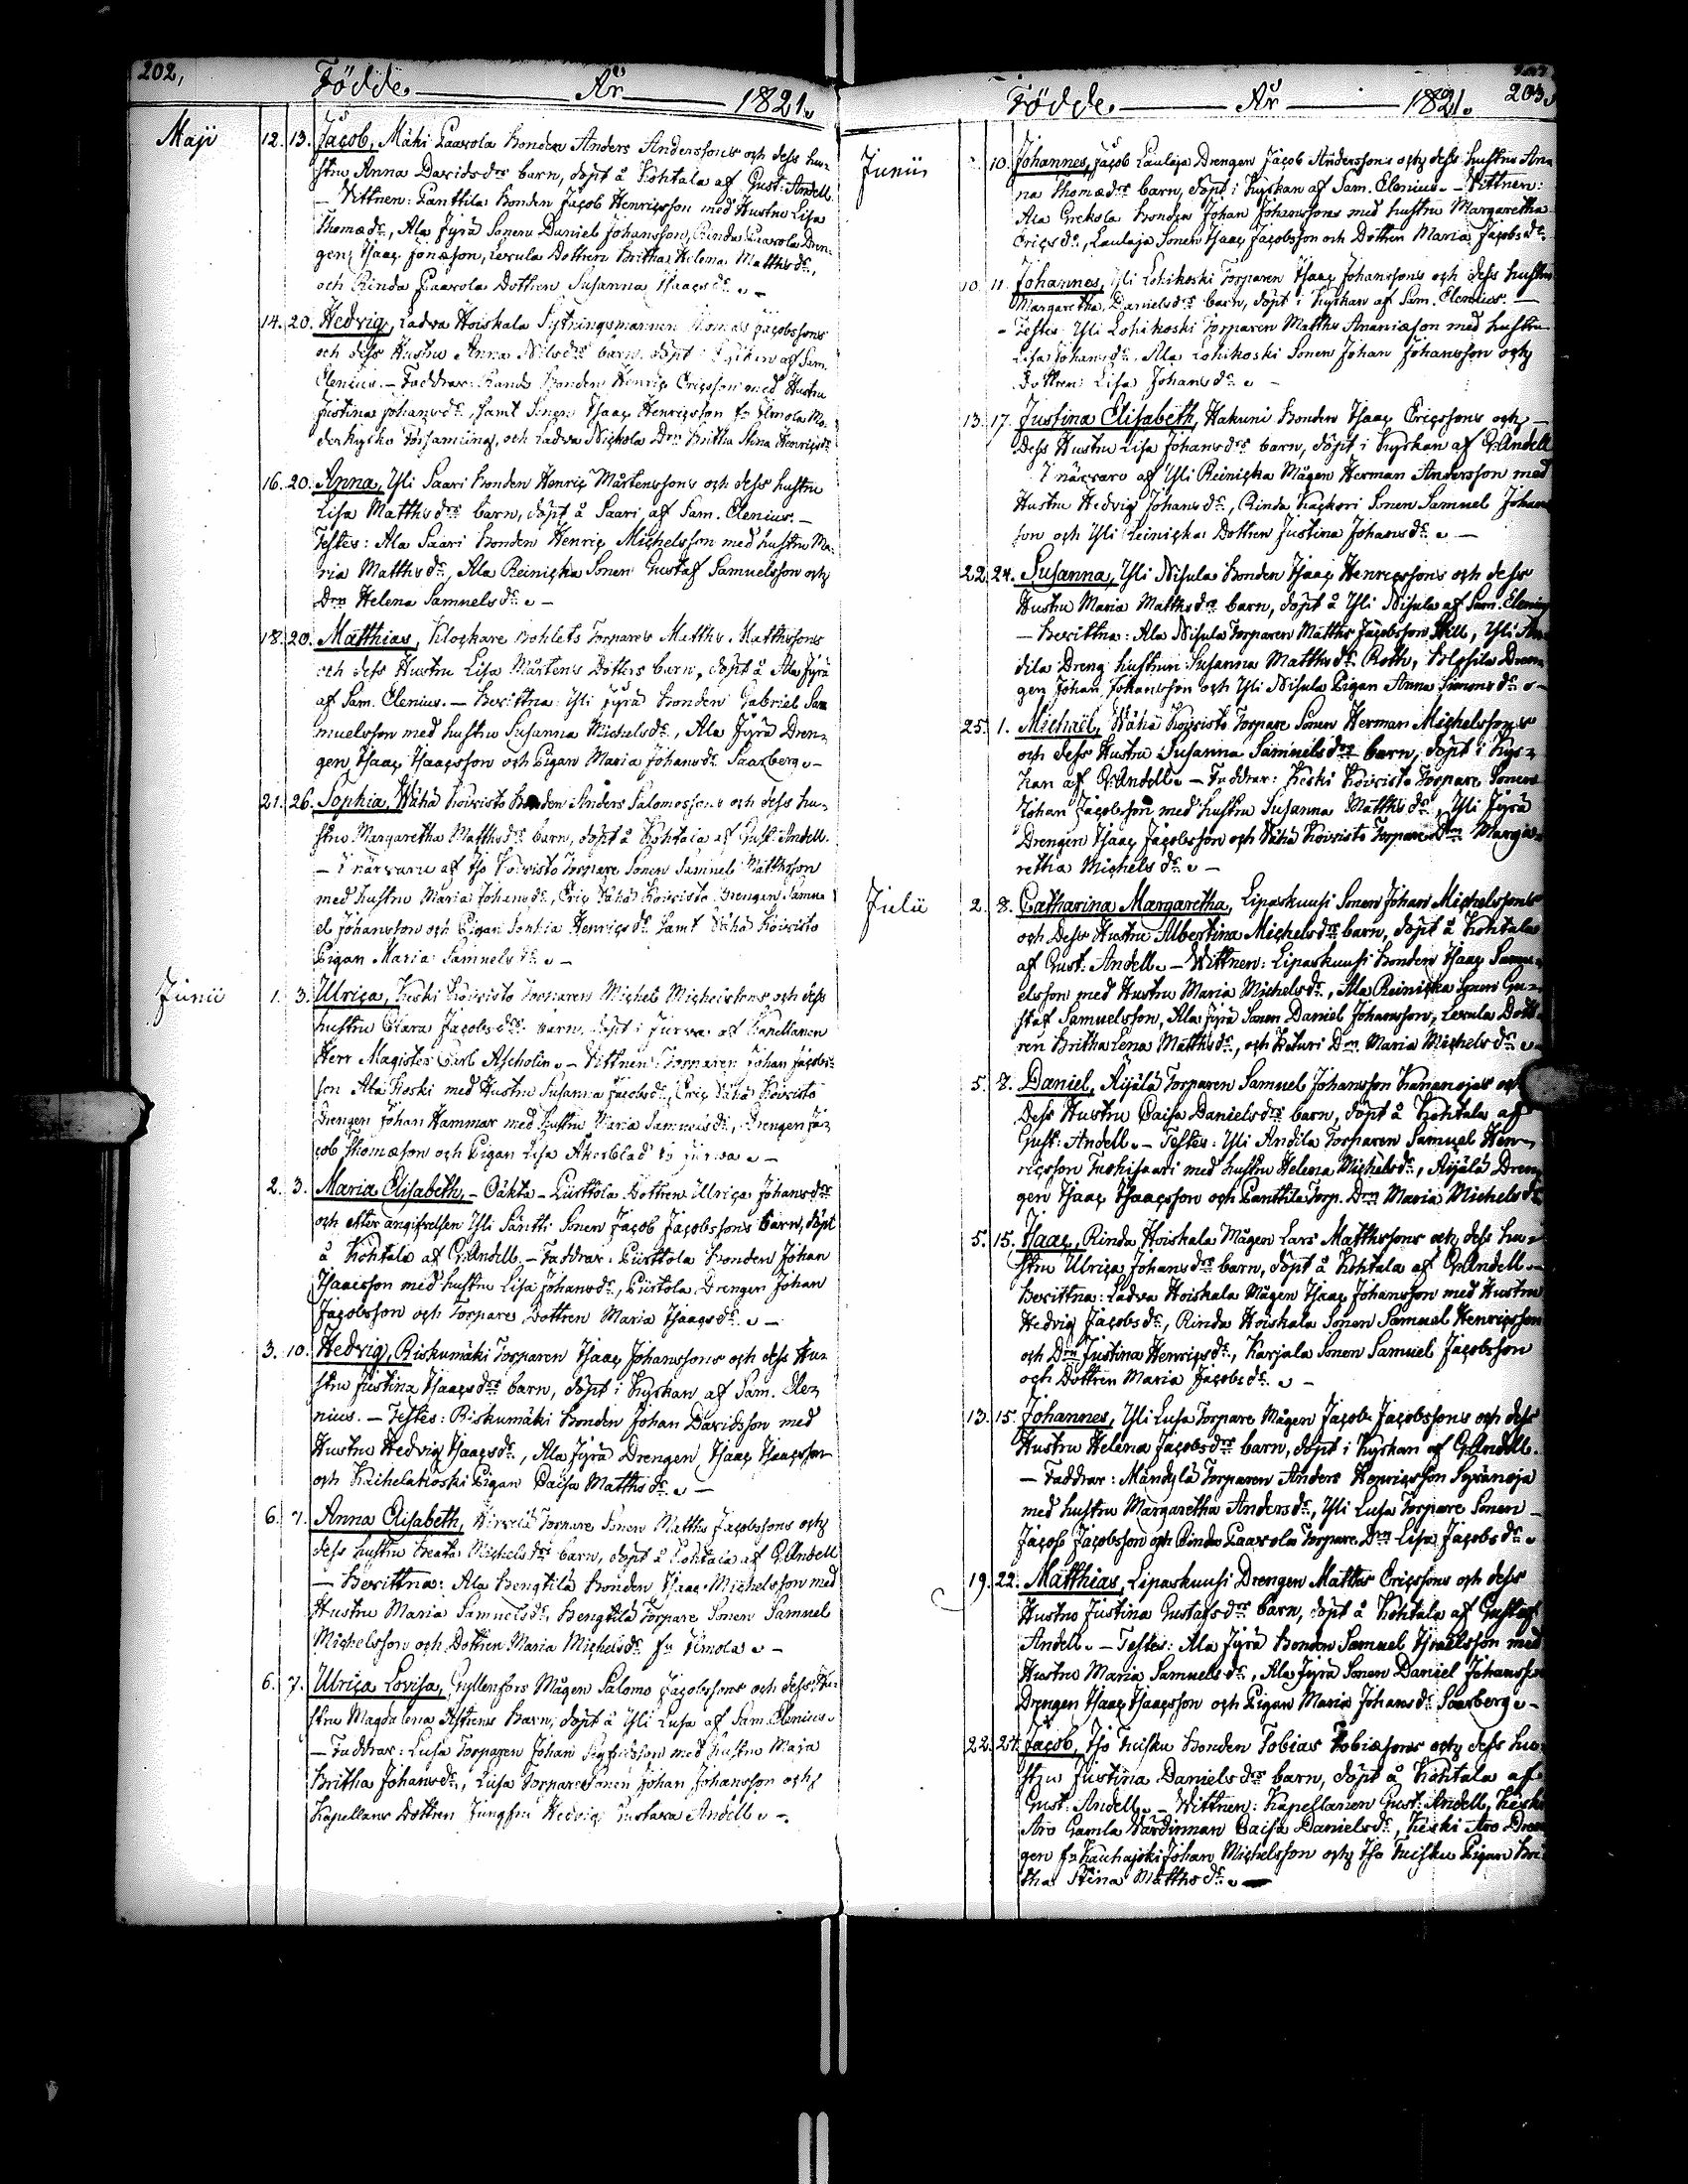 202,
Födde År 1821.
Maji
12. 13. Jacob, Mäki Paavola Bonden Anders Anderssons och dess hu-
stru Anna Davids drs barn, döpt å Kohtala af Gust: Andell
— Vittnen: Panttila Bonden Jacob Henricsson med Hustru Lisa
Thomæ dr, Ala Jyrä Sonen Daniel Johansson, Rinda Paavola Dren-
gen Isaac Jonæson, Lexula Dottren Britha Helena Matths dr,
och Rinda Paavola Dottren Susanna Isaacs dr. —
14. 20. Hedvig, Ladva Hoiskala Sytningsmannen Thomas Jacobssons
och dess Hustru Anna Nils drs barn, döpt i Kyrkan af Sam.
Elenius. — Faddrar: Rands Bonden Henric Ericsson med Hustru
Justina Johans dr, samt Sonen Isaac Henricsson fr Ilmola Mo-
derkyrko Församling, och Ladva Nickola Drn Britha Stina Henrics dr
16. 20. Anna, Yli Saari Bonden Henric Mårtenssons och dess hustru
Lisa Matths drs barn, döpt å Saari af Sam. Elenius. —
Testes: Ala Saari Bonden Henric Michelsson med hustru Ma-
ria Matths dr, Ala Reinicka Sonen Gustaf Samuelsson och
Drn Helena Samuels dr. —
18. 20. Matthias, Klockare Bohlets Torpares Matths Matthssons
och dess Hustru Lisa Mårtens Dotters barn, döpt å Ala Jyrä
af Sam. Elenius. — Bevittna: Yli Jyrä Bonden Gabriel Sam
muelsson med hustru Susanna Michels dr, Ala Jyrä Dren-
gen Isaac Isaacsson och Pigan Maria Johans dr Saarberg. —
21. 26. Sophia, Wähä Koivisto Bonden Anders Salomossons och dess hu-
stru Margaretha Matths drs barn, döpt å Kohtala af Gust: Andell.
— I närvaru af Iso Koivisto Torpare Sonen Samuel Matthsson
med hustru Maria Johans dr, Eric Wähä Koivisto Drengen Samu
el Johansson och Pigan Sophia Henrics dr samt Wähä Koivisto
Pigan Maria Samuels dr. —
Junii
1. 3. Ulrica, Keski Koivisto Torparen Michel Michelssons och dess
hustru Clara Jacobs drs barn, döpt i Jurva af Capellanen
Herr Magister Carl Ascholin. — Vittnen: Torparen Johan Jacobs-
son Ala Koski med Hustru Susanna Jacobs dr, Eric Wähä Koivisto
Drengen Johan Hammar med hustru Maria Samuels dr, Drengen Ja-
cob Thomæson och Pigan Lisa Åkerblad fr Jurva. —
2. 3. Maria Elisabeth, — Oäkta — Piirttola Dottren Ulrica Johans drs
och efter angifvelsen Yli Säntti Sonen Jacob Jacobssons barn, döpt
å Kohtala af G. Andell. — Faddrar: Piirttola Bonden Johan
Isaacsson med hustru Lisa Johans dr, Piirtola Drengen Johan
Jacobsson och Torpare Dottren Maria Isaacs dr. —
3. 10. Hedvig, Riskumäki Torparen Isaac Johanssons och dess Hu-
stru Justina Isaacs drs barn, döpt i Kyrkan af Sam. Ele-
nius. — Testes: Riskumäki Bonden Johan Davidsson med
Hustru Hedvig Isaacs dr, Ala Jyrä Drengen Isaac Isaacsson
och Kuchelakoski Pigan Caisa Matths dr. —
6. 7. Anna Elisabeth, Torpare Sonen Matths Jacobssons och
dess hustru Beata Michels drs barn, döpt å Kohtala af G. Andell
— Bevittna: Ala Bengtilä Bonden Isaac Michelsson med
Hustru Maria Samuels dr, Bengtilä Torpare Sonen Samuel
Michelsson och Dottren Maria Michels dr fr Ilmola. —
6. 7. Ulrica Lovisa, Gyllenfors Mågen Salomo Jacobssons och dess Hu-
stru Magdalena Astrens Barn, döpt å Yli Lusa af Sam. Elenius.
— Faddrar: Lusa Torparen Johan Sigfridsson med hustru Maja
Britha Johans dr, Lusa Torpare Sonen Johan Johansson och
Kapellans Dottren Jungfru Hedvig Gustava Andell. —.
203.
Födde År 1821.
Junii
10. Johannes, Jacob Laulaja Drengen Jacob Anderssons och dess hustru An
na Thomæ drs barn, döpt i Kyrkan af Sam. Elenius. — Vittnen:
Ala Grekola Bonden Johan Johanssons med hustru Margaretha
Erics dr, Laulaja Sonen Isaac Jacobsson och Dottren Maria Jacobs dr.
10. 11. Johannes, Yli Lohikoski Torparen Isaac Johanssons och dess hustru
Margaretha Daniels drs barn, döpt i Kyrkan af Sam. Elenius. —
— Testes: Yli Lohikoski Torparen Matths Ananiæson med hustru
Lisa Johans dr, Ala Lohikoski Sonen Johan Johansson och
Dottren Lisa Johans dr. —
13. 17. Justina Elisabeth, Hakuni Bonden Isaac Ericssons och
Dess Hustru Lisa Johans drs barn, döpt i Kyrkan af G. Andell
I närvaro af Yli Reinicka Mågen Herman Andersson med
Hustru Hedvig Johans dr, Rinda Kackori Sonen Samuel Johans
son och Yli Reinicka Dottren Justina Johans dr. —
22. 24. Susanna, Yli Nisula Bonden Isaac Henricssons och dess
Hustru Maria Matths drs barn, döpt å Yli Nisula af Sam. Elenius
— Bevittna: Ala Nisula Torparen Matths Jacobsson Hill, Yli An
dila Dreng hustrun Susanna Matths dr Roth, Drän
gen Johan Johansson och Yli Nisula Pigan Anna Simons dr. —
25. 1. Michaël, Wähä Koivisto Torpare Sonen Herman Michelssons
och dess Hustru Susanna Samuels drs barn, döpt i Kyr-
kan af G. Andell. — Faddrar: Keski Koivisto Torpare Sonen
Johan Jacobsson med hustru Susanna Matths dr, Yli Jyrä
Drengen Isaac Jacobsson och Wähä Koivisto Torpare Drn Marga-
retha Michels dr. —
Julii
2. 8. Catharina Margaretha, Lipaskuusi Sonen Johan Michelssons
och Dess Hustru Albertina Michels drs barn, döpt å Kohtala
af Gust: Andell. — Wittnen: Lipaskuusi Bonden Isaac Samu-
elsson med Hustru Maria Michels dr, Ala Reinicka Sonen Gu-
staf Samuelsson, Ala Jyrä Sonen Daniel Johansson, Lexula Dott-
ren Britha Lena Matths dr, och Keturi Drn Maria Michels dr. —
5. 8. Daniel, Äijälä Torparen Samuel Johansson Kananojas och
Dess Hustru Caisa Daniels drs barn, döpt å Kohtala af
Gust: Andell. — Testes: Yli Andila Torparen Samuel Hen-
ricsson Turkisaari med hustru Helena Michels dr, Äijälä Dren
gen Isaac Isaacsson och Panttila Torp. Drn Maria Michels dr
5. 15. Isaac, Rinda Hoiskala Mågen Lars Matthssons och dess hu-
stru Ulrica Johans drs barn, döpt å Kohtala af G. Andell —
Bevittna: Ladva Hoiskala Mågen Isaac Johansson med Hustru
Hedvig Jacobs dr, Rinda Hoiskala Sonen Samuel Henricsson
och Drn Justina Henrics dr, Karjala Sonen Samuel Jacobsson
och Dottren Maria Jacobs dr. —
13. 15. Johannes, Yli Lusa Torpare Mågen Jacob Jacobssons och dess
Hustru Helena Jacobs drs barn, döpt i Kyrkan af G. Andell.
— Faddrar: Mändylä Torparen Anders Henricsson Syränoja
med hustru Margaretha Anders dr, Yli Lusa Torpare Sonen —
Jacob Jacobsson och Rinda Paavola Torpare Drn Lisa Jacobs dr.
19. 22. Matthias, Lipaskuusi Drengen Matths Ericssons och dess
Hustru Justina Gustafs drs barn, döpt å Kohtala af Gustaf
Andell. — Testes: Ala Jyrä Bonden Samuel Israelsson med
Hustru Maria Samuels dr, Ala Jyrä Sonen Daniel Johansson
Drengen Isaac Isaacsson och Pigan Maria Johans dr Saarberg. —
22. 28. Jacob, Iso Tuisku Bonden Tobias Tobiæsons och dess hu-
stru Justina Daniels drs barn, döpt å Kohtala af
Gust: Andell. — Wittnen: Kapellanen Gust: Andell, Keski
Aro Gamla Värdinnan Caisa Daniels dr, Keski Aro Dren
gen fr Kauhajoki Johan Michelsson och Iso Tuisku Pigan Bri
tha Stina Matths dr. —